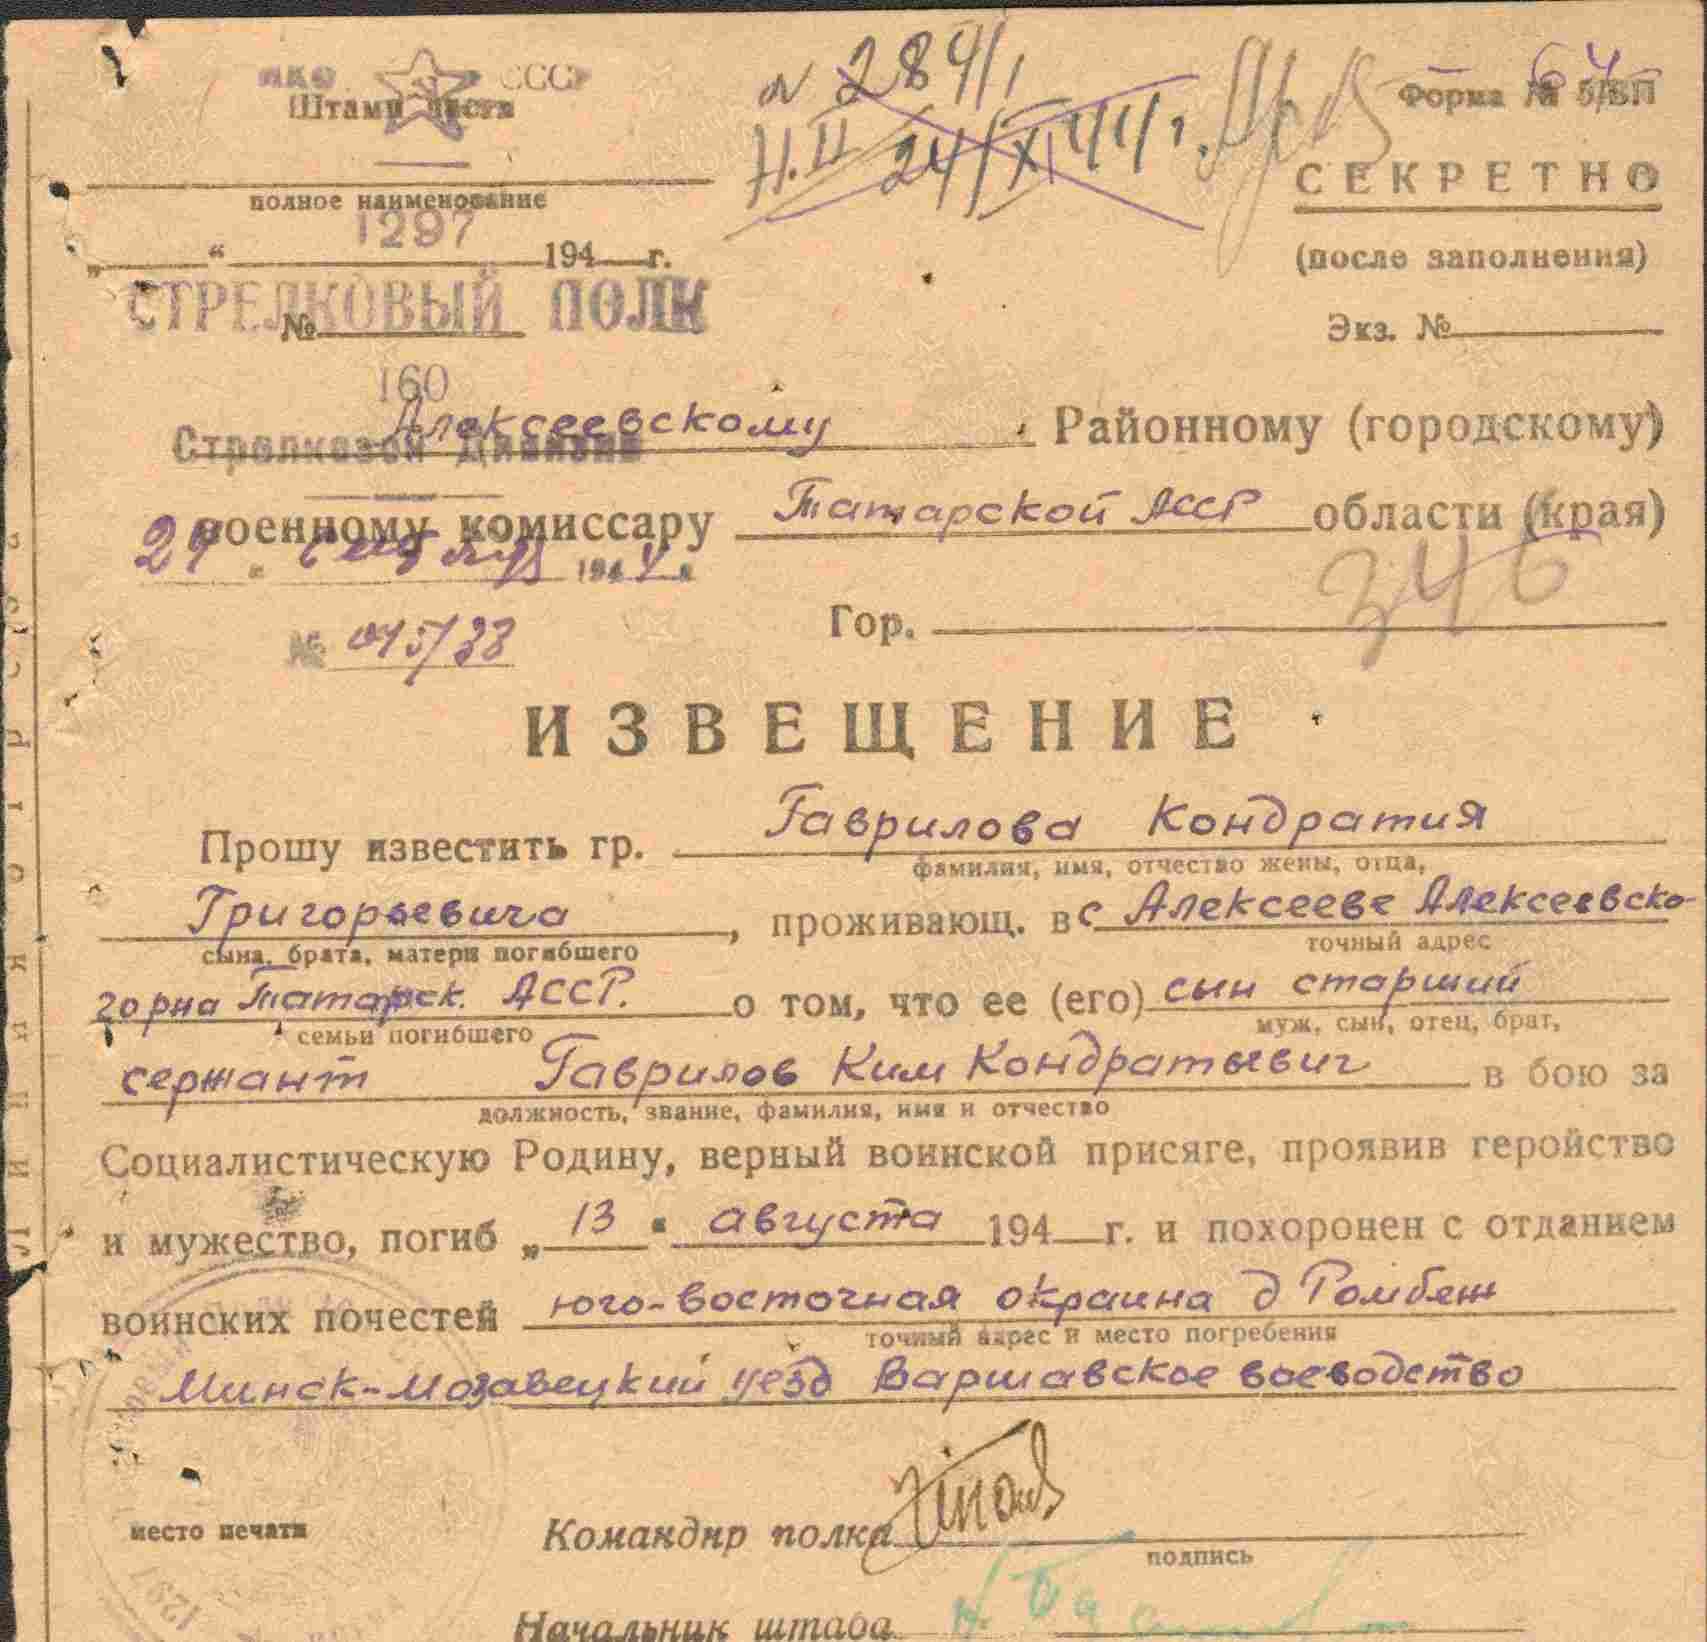 НКО СССР
Штамп части
№ 284/1
Н.II 24/XI 44 г.
64
Форма № 5/ВП
СЕКРЕТНО
(после заполнения)
Экз. №
полное наименование
1297
„ “ 194 г.
СТРЕЛКОВЫЙ ПОЛК
№
160
Стрелковой Дивизии
Алексеевскому Районному (городскому)
военному комиссару Татарской АССР области (края)
24 " 1944 г.
346
Гор.
№ 045/38
ИЗВЕЩЕНИЕ
Прошу известить гр. Гаврилова Кондратия
фамилия, имя, отчество жены, отца,
Григорьевича, проживающ. в с Алексееве Алексеевско-
сына, брата, матери погибшего точный адрес
горна Татарск. АССР. о том, что ее (его) сын старший
семьи погибшего муж, сын, отец, брат,
сержант Гаврилов Ким Кондратьевич в бою за
должность, звание, фамилия, имя и отчество
Социалистическую Родину, верный воинской присяге, проявив геройство
и мужество, погиб „ 13 " августа 194 г. и похоронен с отданием
воинских почестей юго-восточная окраина д Ромбеж
точный адрес и место погребения
Минск-Мозавецкий уезд Варшавское воеводство
место печати
Командир полка
подпись
Начальник штаба
1297